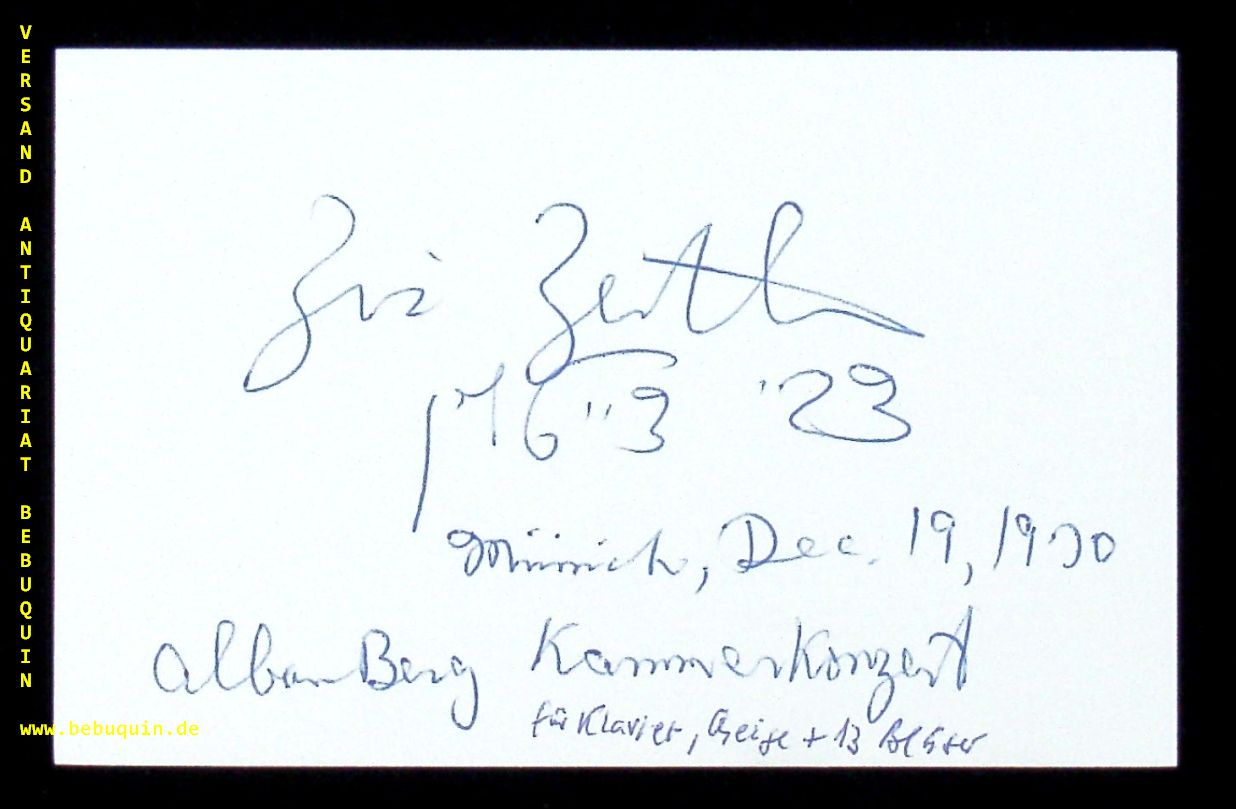 VERSAND ANTIQUARIAT BEBUQUIN
www.bebuquin.de
Zvi Zeitlin
München, Dec. 19, 1970
Alban Berg Kammerkonzert
für Klavier, Geige + 13 Bläser